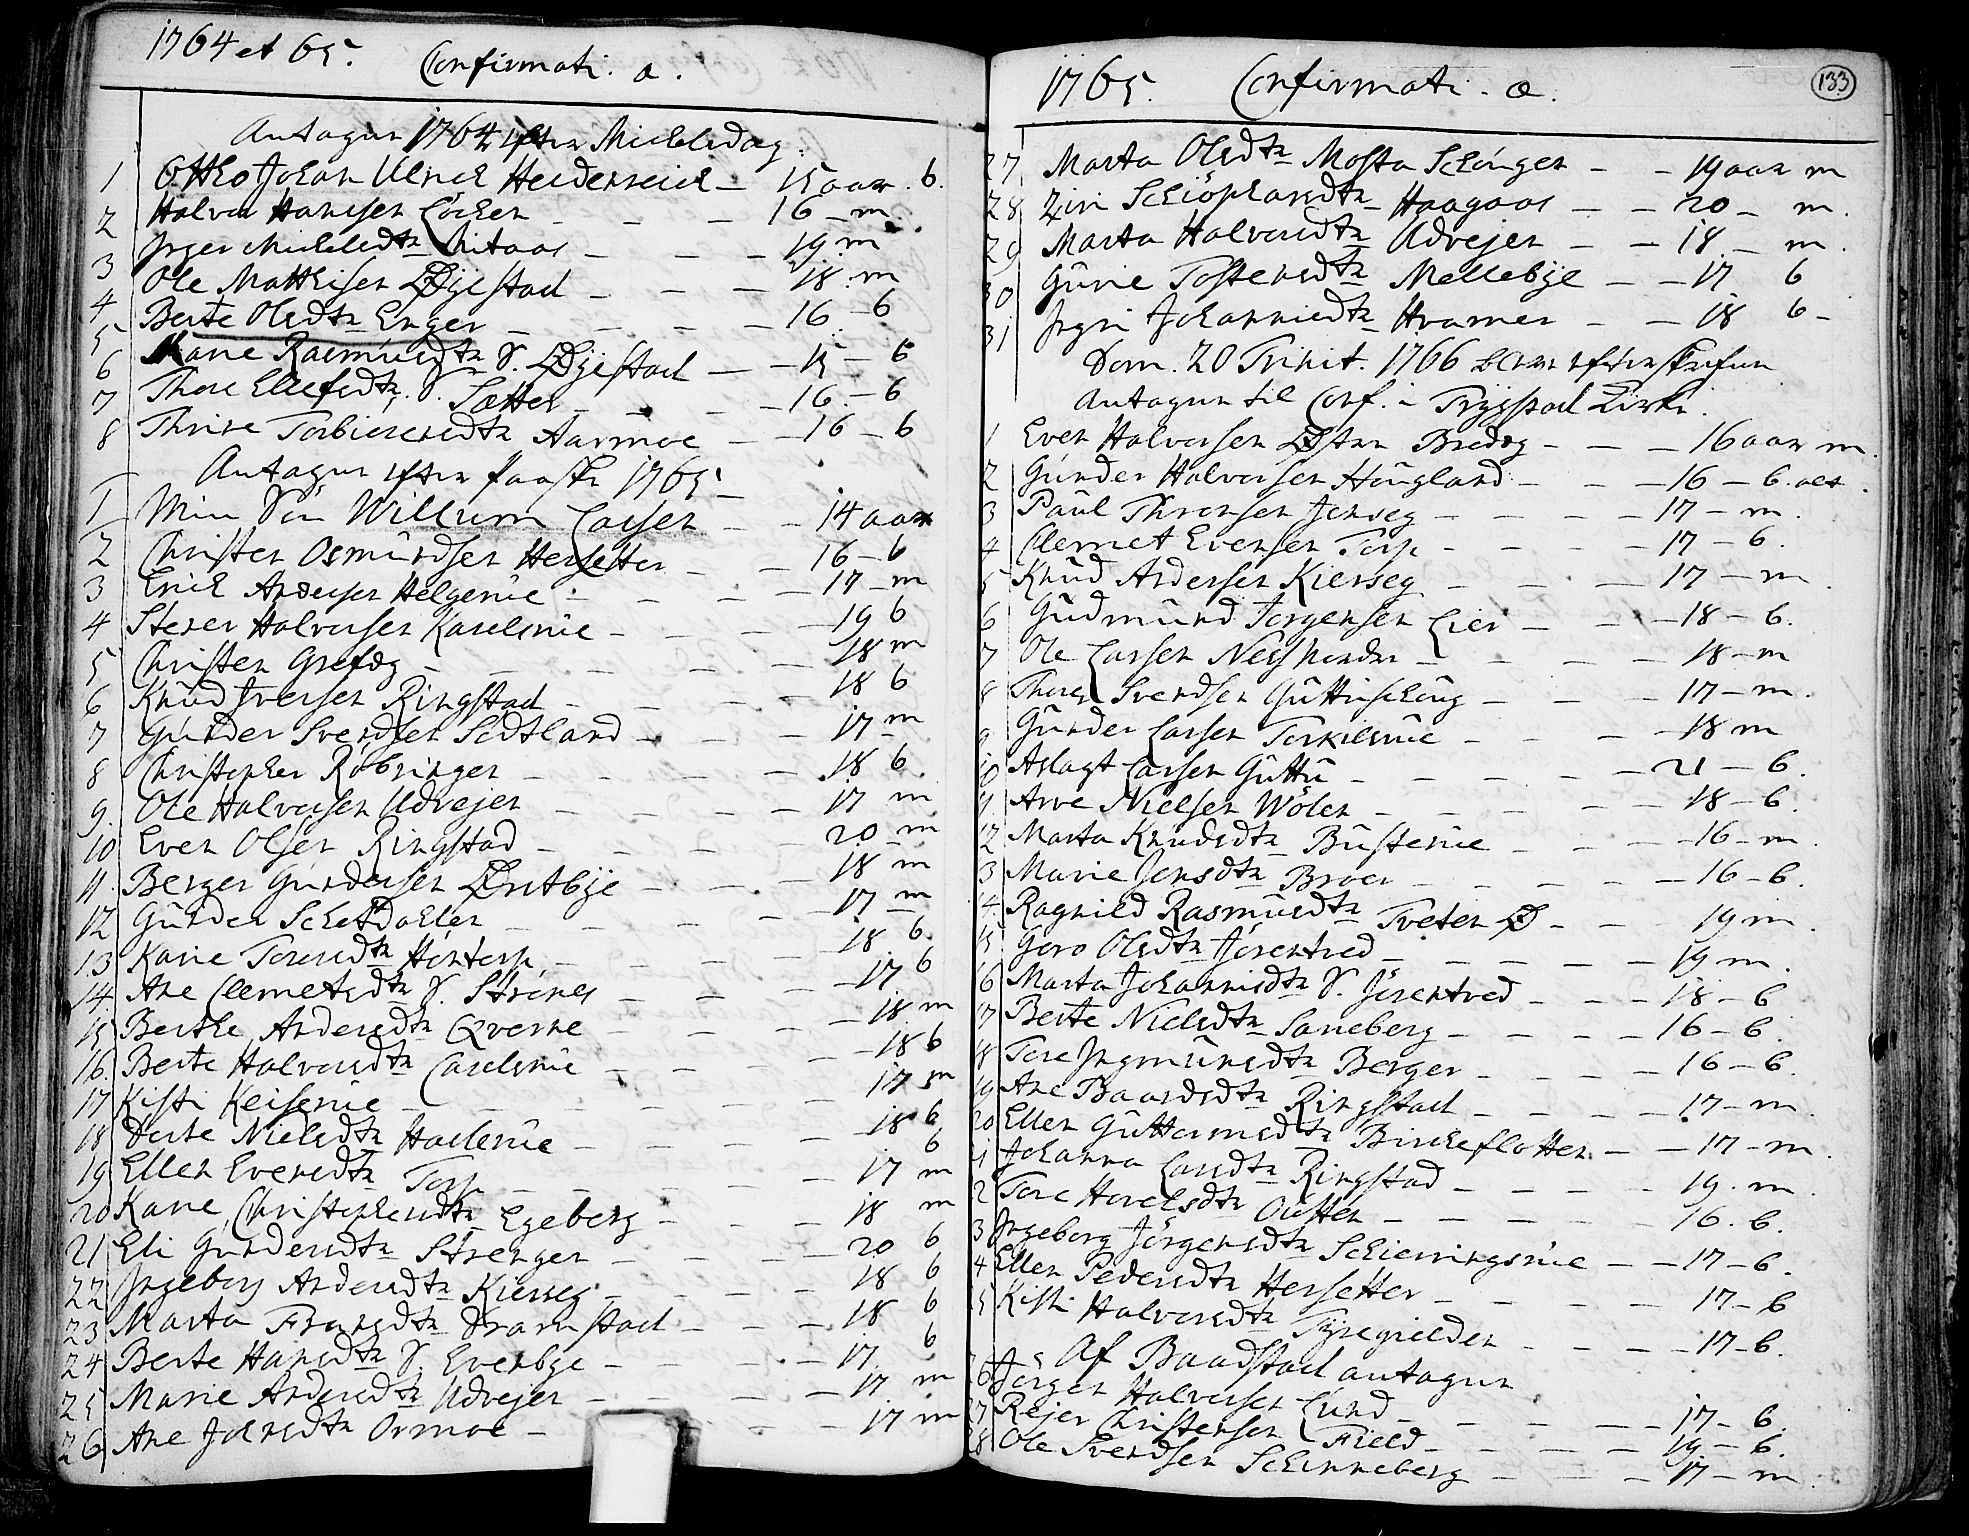 1764 et 65. Confirmati. æ.
Antagne 1764 efter Michelsdag.
1 Ottho Johan Ulrich Heidenreich — 15 aar. b.
2 Halvor Hansen Løcken — 16 — m.
3 Inger Michelsdtr Mitaas — 19. m
4 Ole Mathisen Øyestad — 18. m
5 Berte Olsdtr Enger — 16. — b
6 Marie Rasmusdtr S. Øyestad — 15 — b
7 Thore Ellefsdtr. S. Sætter — 16. — b
8 Thrine Torbiørnsdtr Aarmoe — 16 — b
Antagne efter Paaske 1765.
1 Min Søn Willum Lassen — 14 aar
2 Christen Osmundsen Hersetter — 16 — b
3 Erick Andersen Helgerue — 17 — m
4 Stener Halvorsen Karelsrue — 19 b
5 Christen Grefseg — 18 m
6 Knud Iversen Ringstad — 18 b
7 Gunder Svendsen Sletland — 17 — m
8 Christopher Robsinger — 18 b.
9. Ole Halvorsen Udvejen — 17 m
10 Even Olsen Ringstad — 20 — m
11. Berger Gundersen Østbye — 18 m
12 Gunder Schetdahlen — 17 — m
13 Karie Toresdtr Hontorp — 18 b.
14. Ane Clemetsdtr S. Strones — 17 b
15 Berthe Andersdtr Qverne — 18 m
16. Berte Halvorsdtr Carelsrue — 18 b
17 Kisti Keiserue — 17 m
18 Dorte Nielsdtr Haelsrue — 18 b
19 Ellen Evensdtr Torp — 17 m
20 Karie Christophersdtr Egeberg — 18 m
21 Eli Gundersdtr Strenger — 20 b
22 Ingeborg Andersdtr Kierseg — 18 b
23 Marta Fransdtr Framstad — 18 b
24 Berte Hansdtr S. Evenbye — 17. b
25 Marie Andersdtr Udvejen — 17 m
26 Ane Johnsdtr Ormoe — 17 m
1765. Confirmati. æ. 133
27 Marta Olsdtr Mosta Schøngen — 19 aar m
28 Ziri Schiöphansdtr Haagaas — 20 — m.
29 Marta Halvorsdtr Udvejen — 18 — m.
30 Gurie Tostensdtr Mellebye — 17 b
31 Ingri Johannisdtr Hramer — 18 b —
Dom. 20 Trinit. 1766 bleve efterskrefne
Antagne til Conf. i Trygstad Kirke.
1 Even Halvorsen Østre Bredeg — 16 aar m.
2 Gunder Halvorsen Haugland — 16 — b.
3 Paul Thronsen Jenseg — 17 — m.
4 Clemet Evensen Torp — 17 — b.
5 Knud Andersen Kierseg — 17 — m.
6 Gudmund Jorgensen Lier — 18 — b.
7 Ole Larsen — 18 — m
8 Thore Svendsen — 17 — m.
9 Gunder Larsen Torkilsrue — 18 m
10 Aslagt Larsen Guttu — 21 — b.
11 Arve Nielsen Wölen — 18 — b.
12 Marta Knudsdtr Busterue — 16 — m.
3 Marie Jensdtr Broer — 16 — b.
4. Ragnild Rasmusdtr Tveten Ø — 19 m.
15 Goro Olsdtr Jörentved — 19 m.
6 Marta Johannisdtr S. Jörentved — 18 — b
17 Berte Nielsdtr Saneberg — 16 — b.
18 Tore Ingmunsdtr Berger — 16 — b.
19 Ane Baardsdtr Ringstad — 17 — m.
20 Ellen Guttormsdtr Birckeflotten — 17 — m.
1 Johanna Larsdtr Ringstad — 19. m.
2 Tore Havelsdtr Outten — 16. b.
3 Ingeborg Jörgensdtr Schierningsrue — 17 — b.
4 Ellen Pedersdtr Hersetter — 17 — b
5 Kisti Halvorsdtr Tyregielden — 17 — b.
Af Baadstad antagne
6 Jörgen Halvorsen Lund — 17 — b.
7 Rejer Christensen Field — 19 — b.
8 Ole Svendsen Schinneberg — 17 — m.